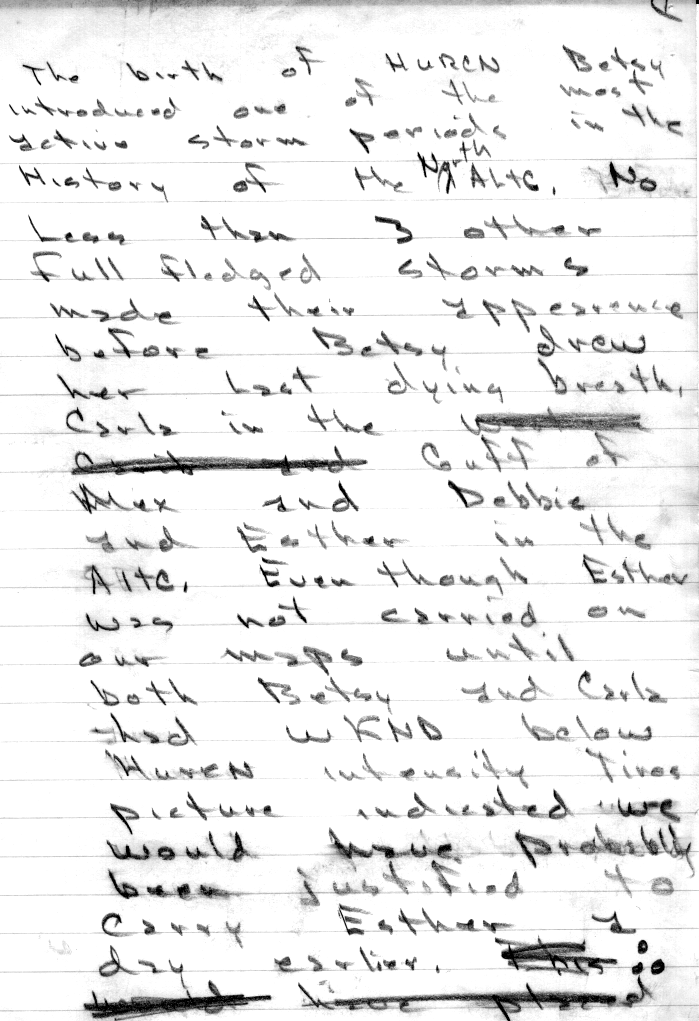 The birth of HURCN Betsy
introduced one of the most
active storm periods in the
History of the North ALTC. No
Less than 3 other
Full Fledged storms
made their appearence
before Betsy drew
her Last dying breath.
Carla in the
Gulf of
Mex and Debbie
and Esther in the
AltC. Even though Esther
was not carried on
our maps until
both Betsy and Carla
had WKND below
HurcN intensity Tiros
picture indicated we
would have probably
been justified to
Carry Esther a
day earlier. This
would have placed